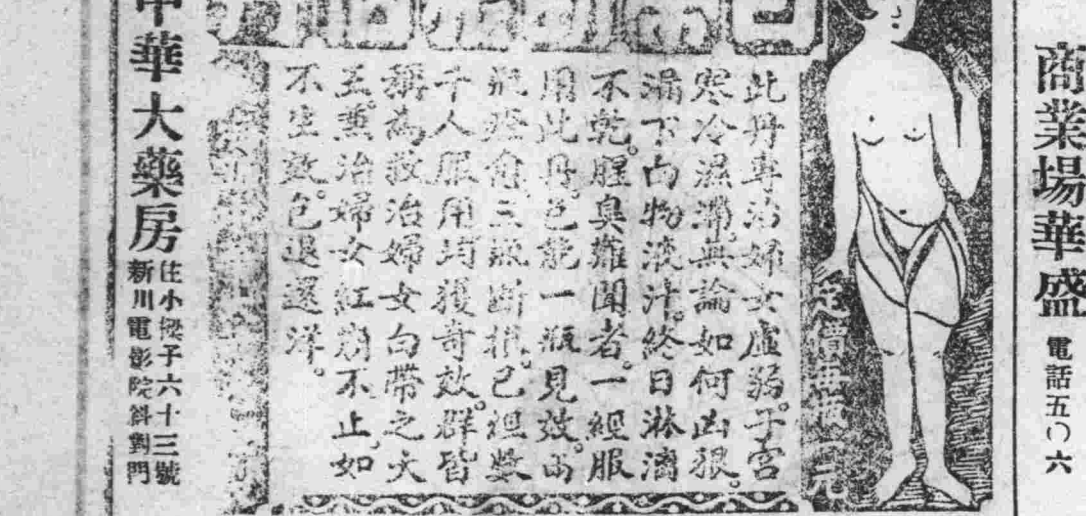 商業場華盛 電話五〇六
定價每瓶一元
此丹專治婦女虛弱。子宮
寒冷濕滯。無論如何凶狠。
漏下白物淡汁。終日淋漓
不乾。腥臭難聞者。一經服
用此丹。包能一瓶見效。兩
瓶痊愈。三瓶斷根。已經幾
千人服用均獲奇效。群皆
稱為救治婦女白帶之大
王。兼治婦女紅崩不止。如
不生效。包退還洋。
中華大藥房
住小樑子六十三號
新川電影院斜對門